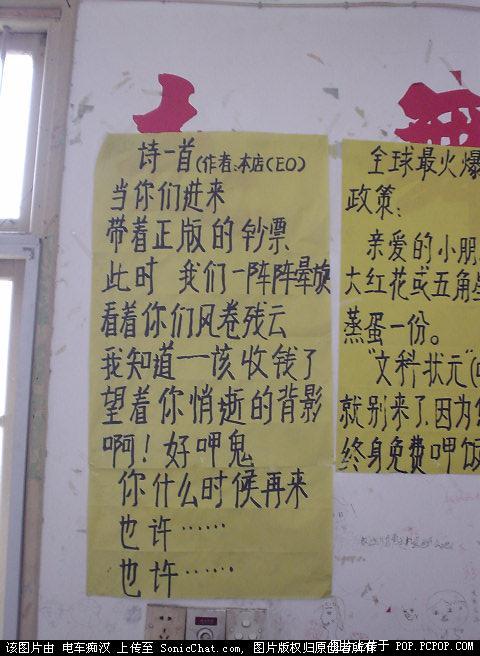 诗一首(作者:本店CEO)
当你们进来
带着正版的钞票
此时 我们一阵阵晕旋
看着你们风卷残云
我知道一该收钱了
望着你悄逝的背影
啊！好呷鬼
你什么时候再来
也许……
也许……
全球最火爆
政策：
亲爱的小朋
大红花或五角星
蒸蛋一份。
"文科状元"
就别来了,因为
终身免费呷饭
该图片由 电车痴汉 上传至 SonicChat.com ，图片版权归原创者所有
图片放于 POP.PCPOP.COM